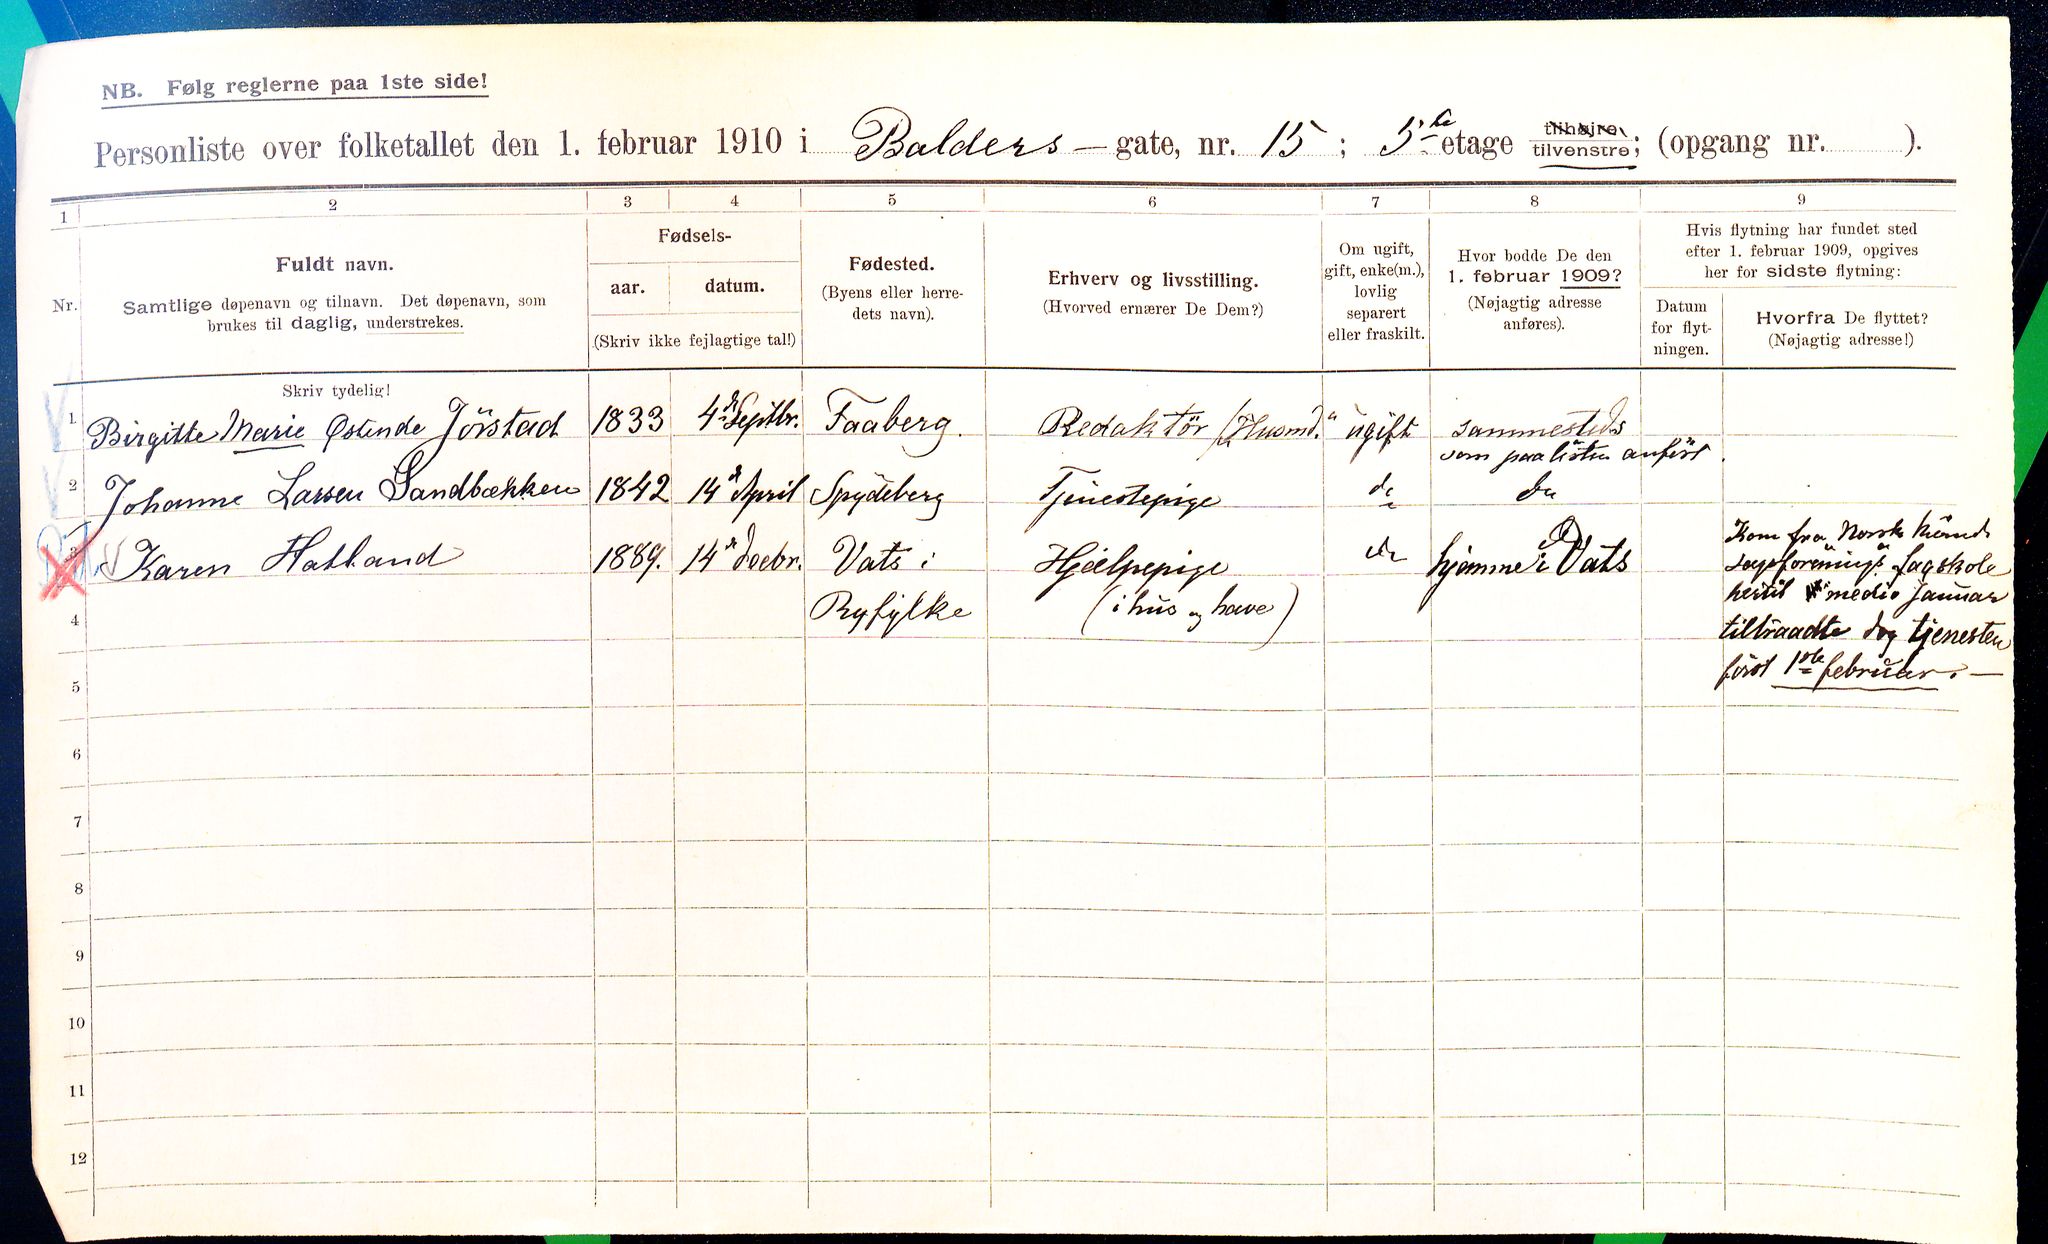 NB. Følg reglerne paa 1ste side!
Personliste over folketallet den 1. februar 1910 i Balders-gate, nr. 15; 5te etage tilhøjre tilvenstre; (opgang nr. ).
1 2 3 4 5 6 7 8 9
Nr.
Fuldt navn.
Samtlige døpenavn og tilnavn. Det døpenavn, som
brukes til daglig, understrekes.
Skriv tydelig!
Fødsels-
aar. datum.
(Skriv ikke fejlagtige tal!)
Fødested.
(Byens eller herre-
dets navn).
Erhverv og livsstilling.
(Hvorved ernærer De Dem?)
Om ugift,
gift, enke(m.),
lovlig
separert
eller fraskilt.
Hvor bodde De den
1. februar 1909?
(Nøjagtig adresse
anføres).
Hvis flytning har fundet sted
efter 1. februar 1909, opgives
her for sidste flytning:
Datum
for flyt-
ningen.
Hvorfra De flyttet?
(Nøjagtig adresse!)
1 Birgitte Marie Østende Jörstad 1833 4de Septbr. Faaberg. Redaktör ("Husmd." ugift sammesteds
som paa listen anfört.
2 Johanne Larsen Sandbækken 1842 14de April Spydeberg Tjenestepige do do
3 Karen Hatland 1889. 14de decbr. Vats i Hjælpepige do hjemme i Vats
4 Ryfylke (i hus og have)
Kom fra Norsk Kvinde
sagsforenings fagskole
hertil medio Januar
tiltraadte dog tjenesten
först 1ste februar. —
5
6
7
8
9
10
11
12